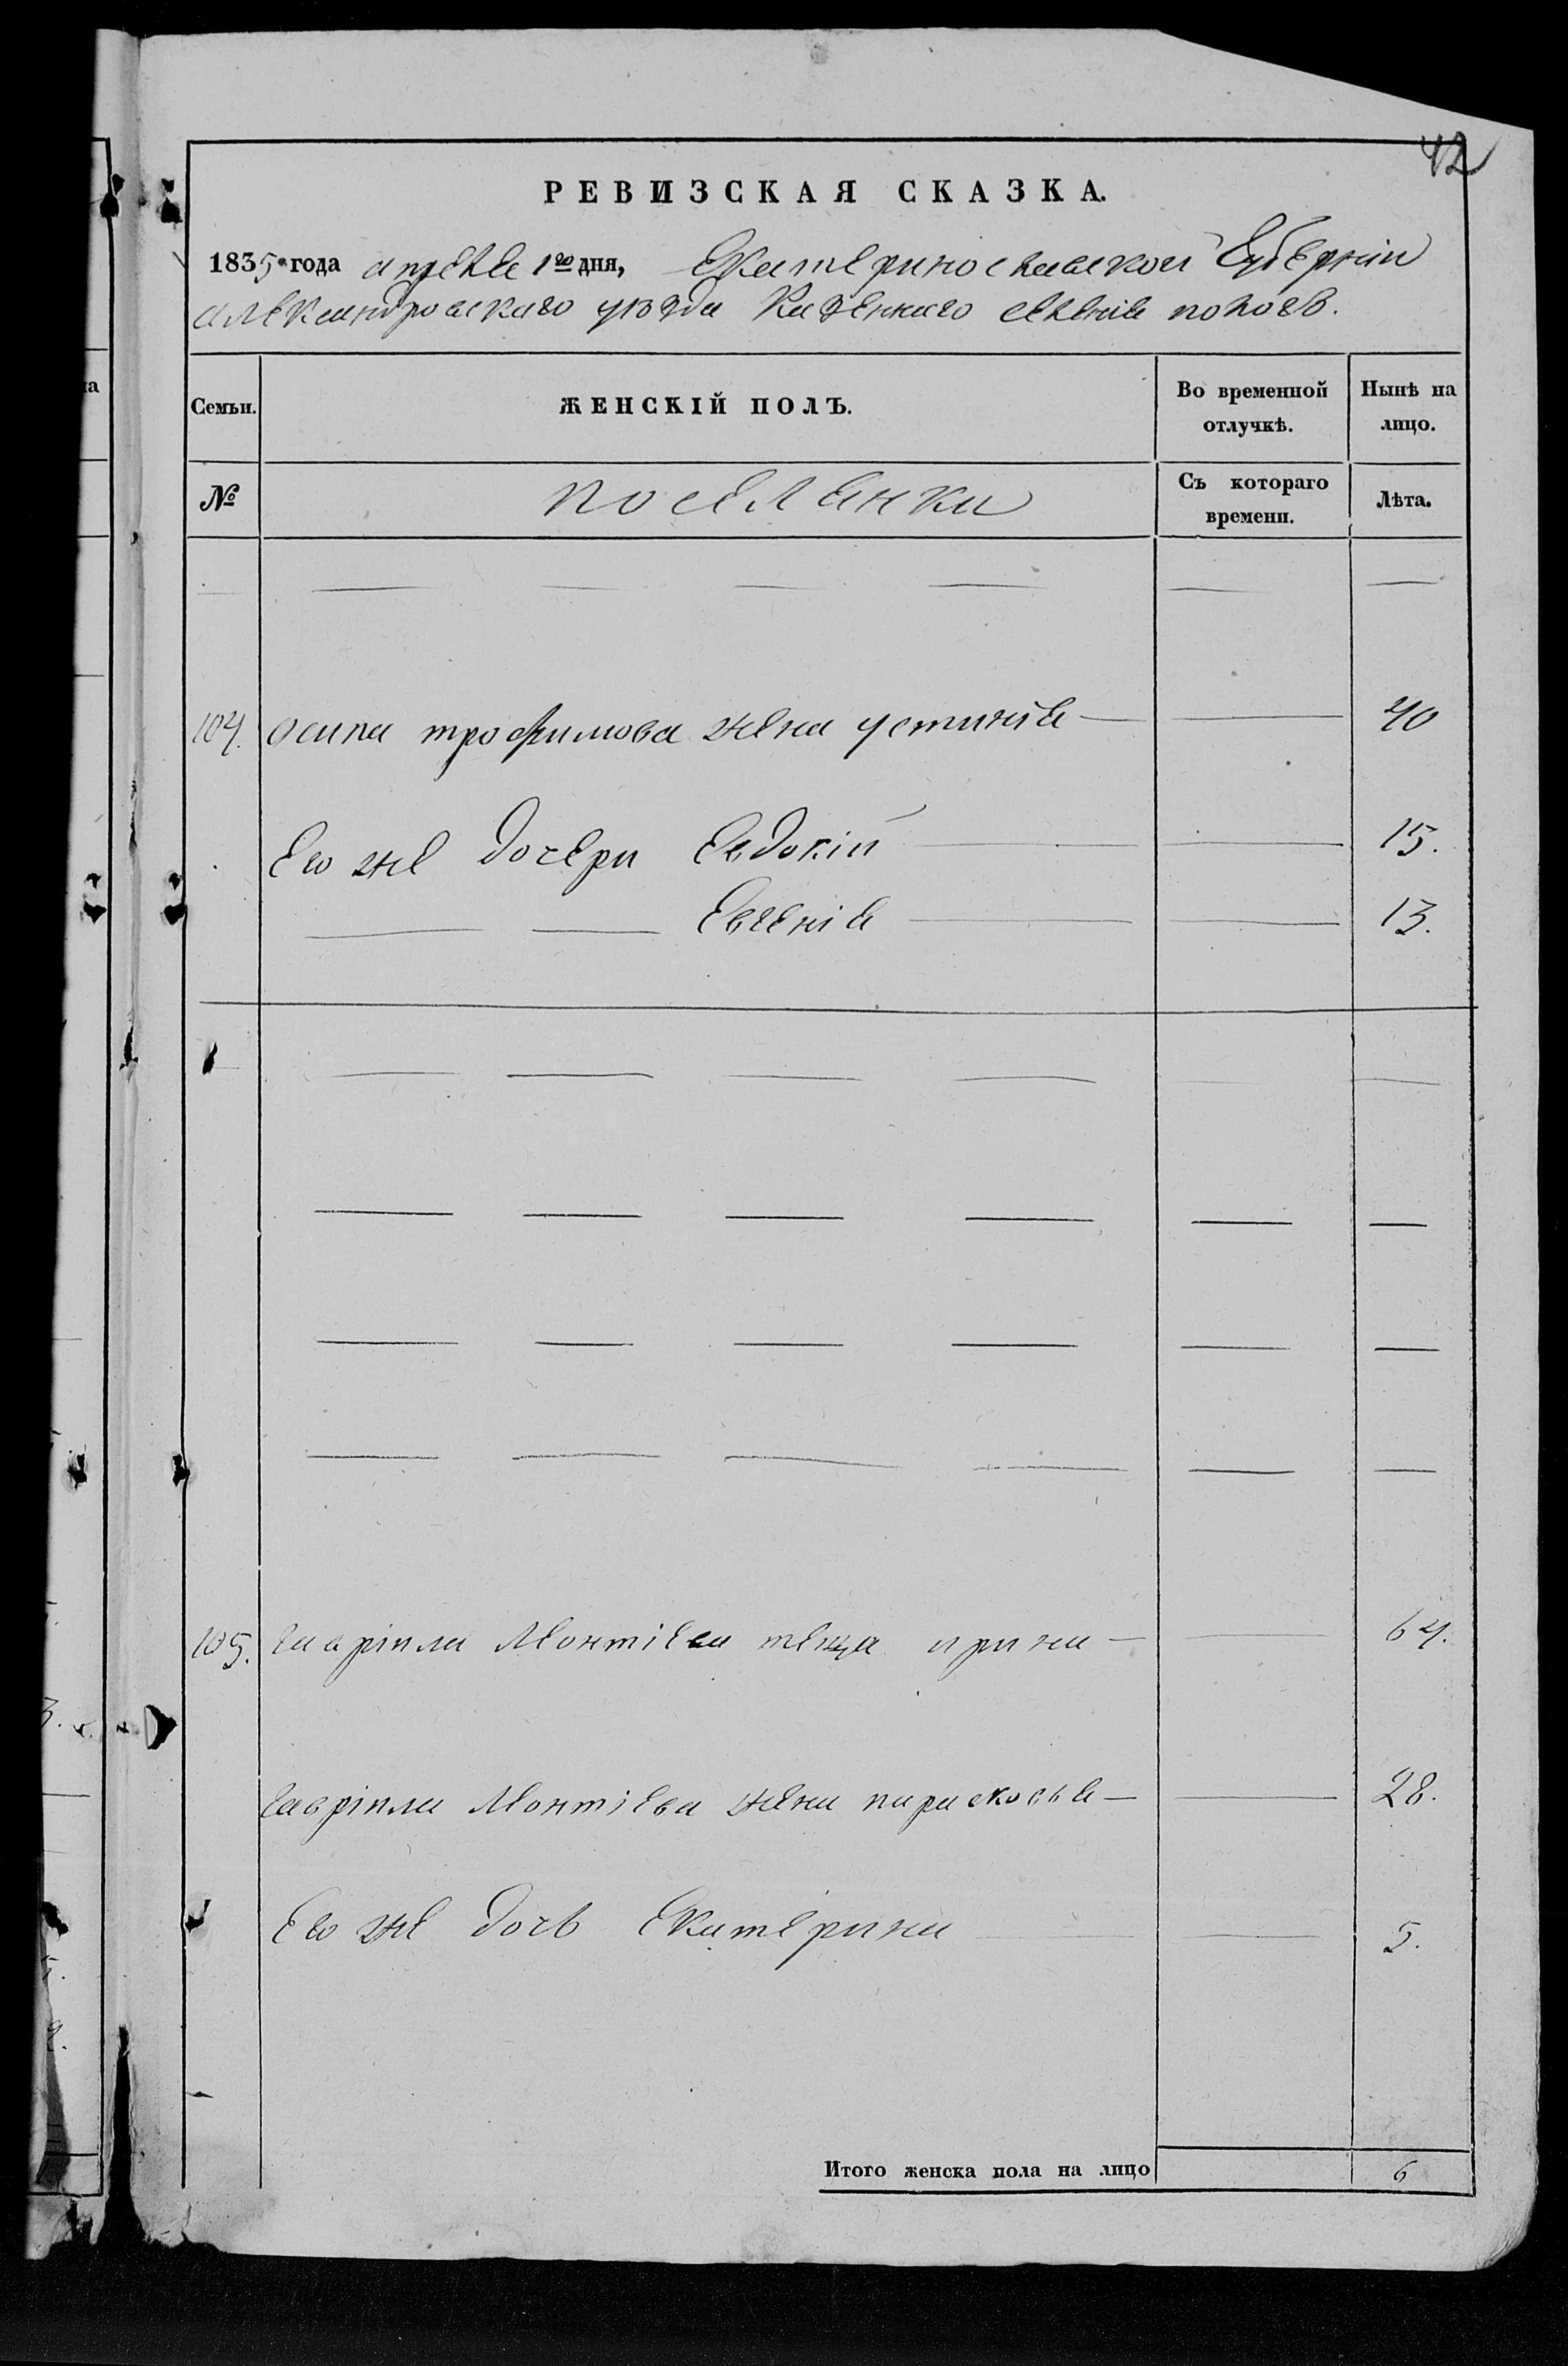 42
РЕВИЗСКАЯ СКАЗКА.
1835 года апреля 1го дня, Екатеринославской Губернии
александровскаго уѣзда Казеннаго селения пологъ.
Семьи. ЖЕНСКІЙ ПОЛЪ. Во временной отлучкѣ. Нынѣ на лицо.
№ поселянки Съ котораго времени. Лѣта.
104. осипа трофимова жена устинія 40
Его же дочери Евдокія 15.
Евгенія 13.
105. гавріила Леонтіева теща ирина 64.
гавріила Леонтіева жена парасковья 28.
Его же дочь Екатерина 5.
Итого женска пола на лицо 6